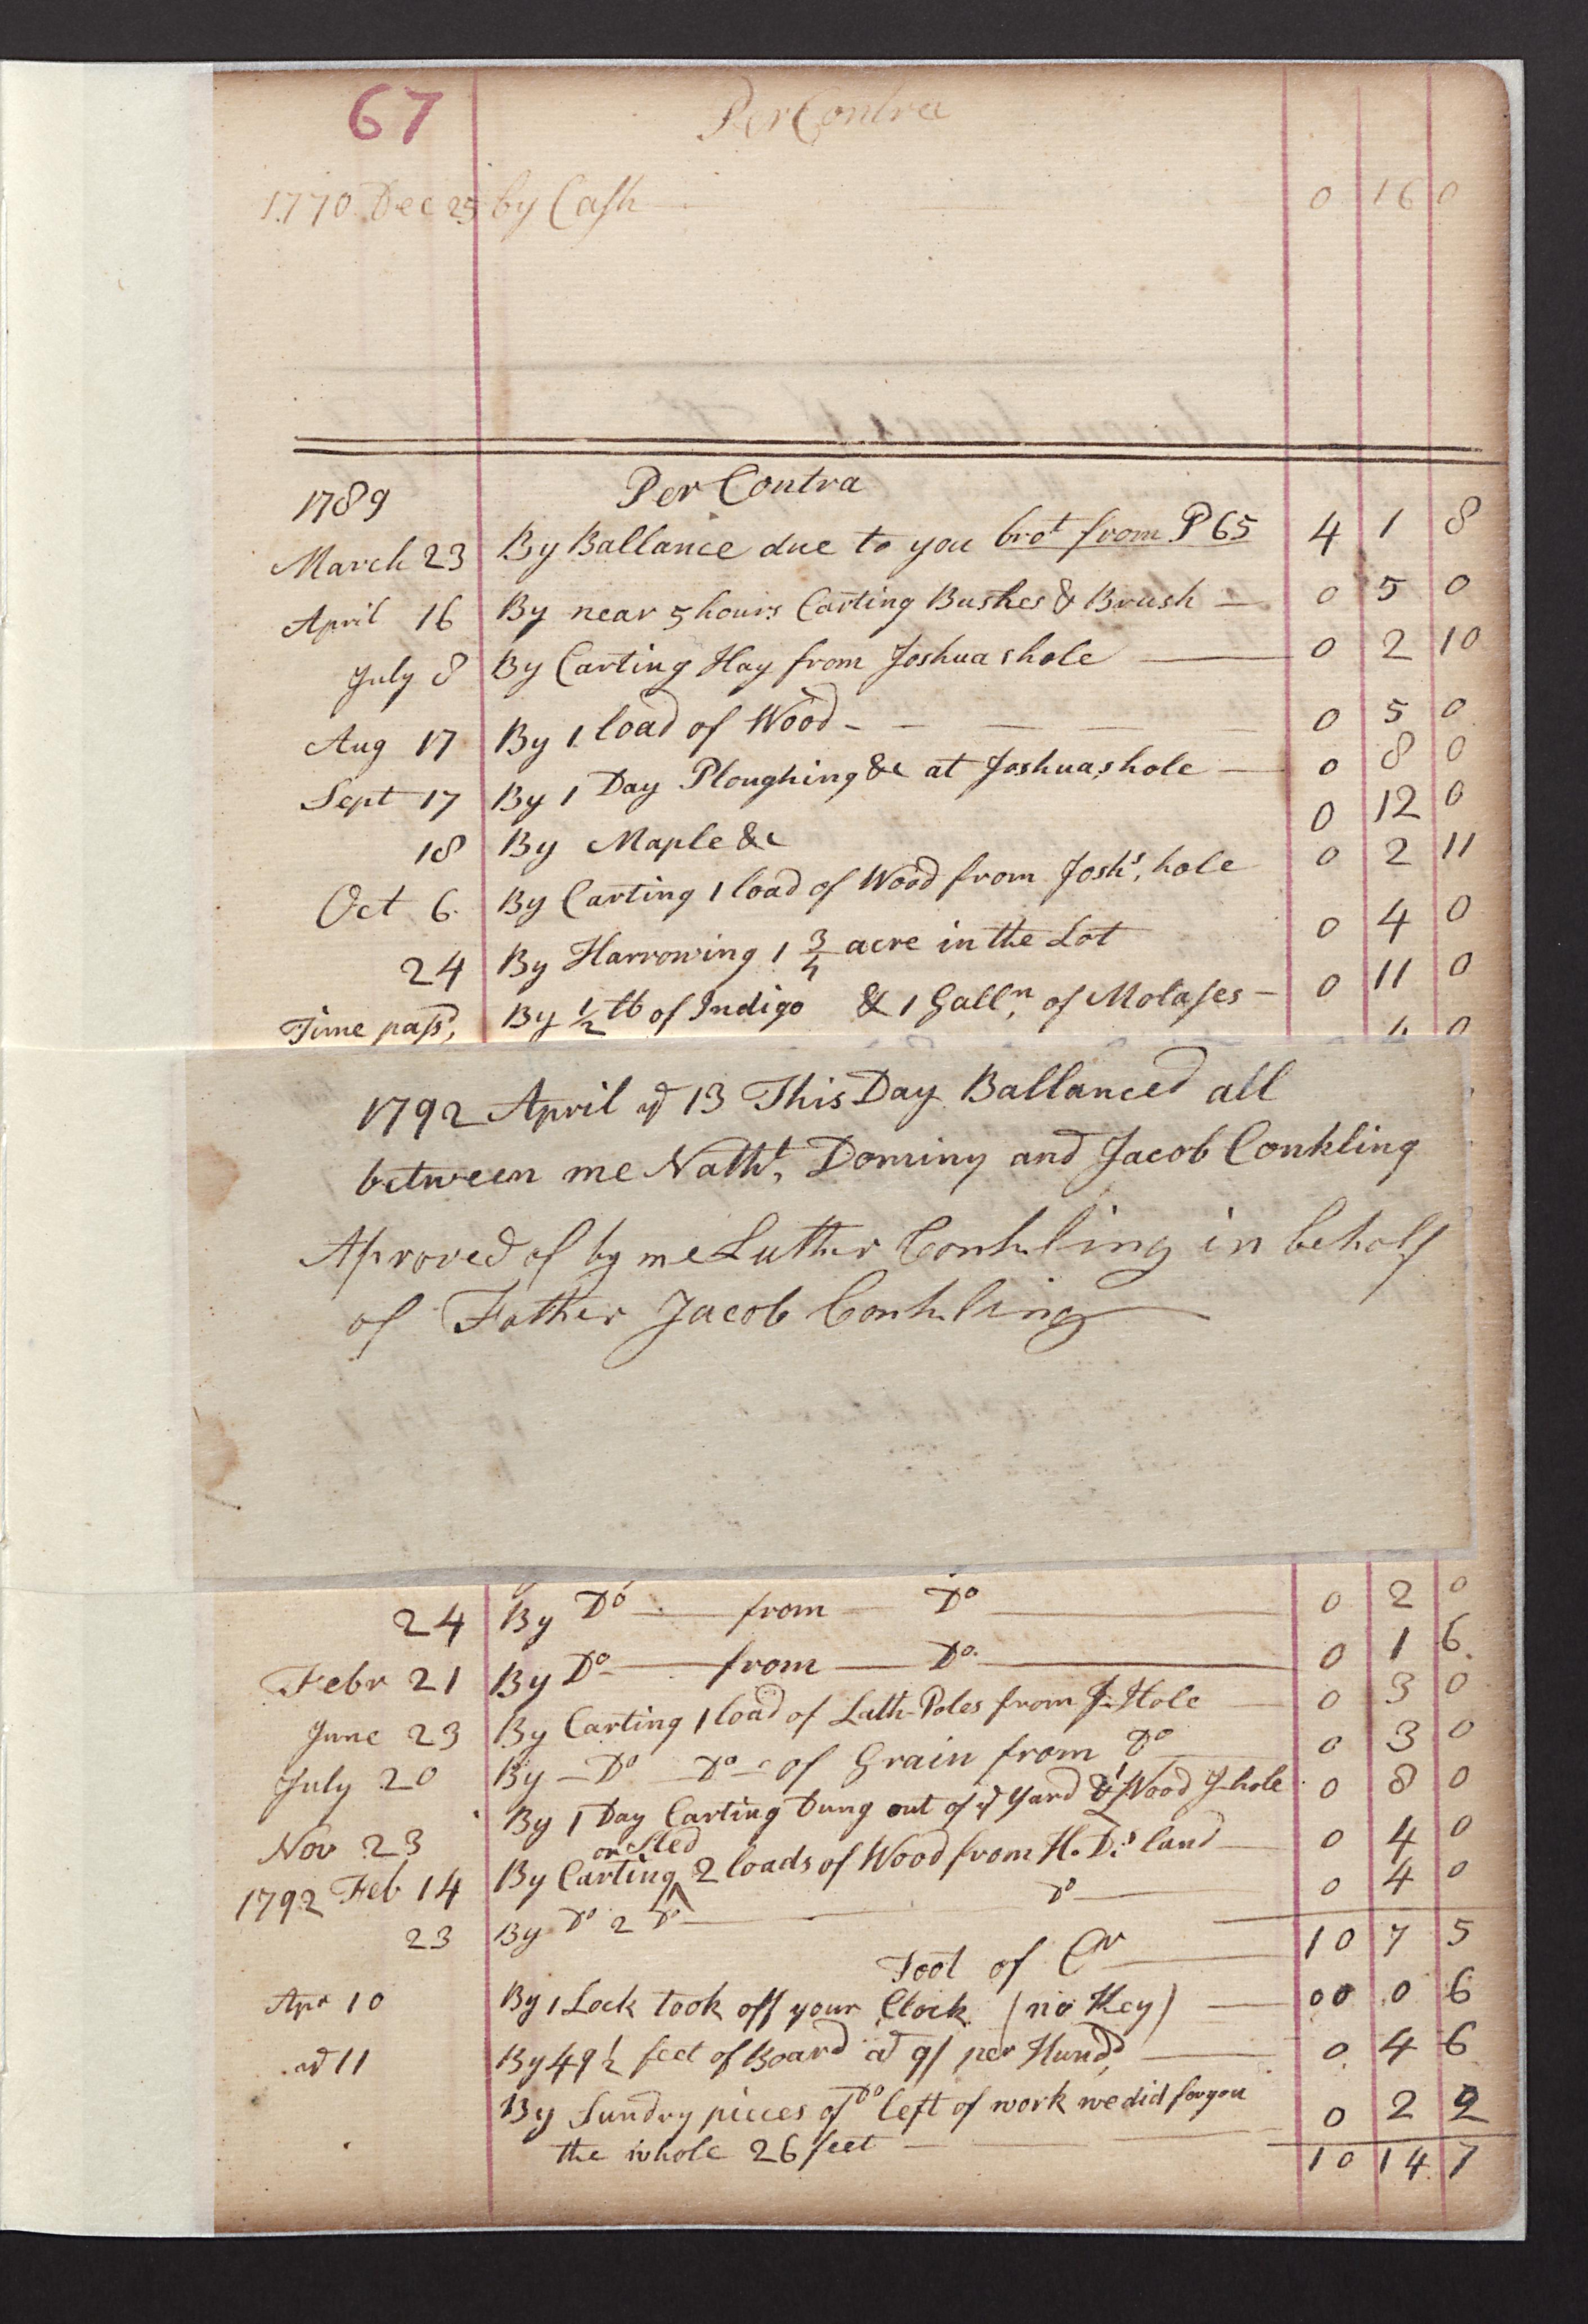 67 Per Contra
1770 Dec 25 by Cash 0 16 0
1789 Per Contra
March 23 By Ballance due to you brot from P 65 4 1 8
April 16 By near 5 hours Carting Bushes & Brush 0 5 0
July 8 By Carting Hay from Joshuashole 0 2 10
Aug 17 By 1 load of Wood 0 5 0
Sept 17 By 1 Day Ploughing &c at Joshuashole 0 8 0
18 By Maple &c 0 12 0
Oct 6 By Carting 1 load of Wood from Joshs, hole 0 2 11
24 By Harrowing 1 3/4 acre in the Lot 0 4 0
Time past, By 1/2 lb of Indigo & 1 Galln, of Molases 0 11 0
1792 April ye 13 This Day Ballanced all
between me Nathl, Dominy and Jacob Conkling
Aproved of by me Luther Conkling in behalf
of Father Jacob Conkling
24 By Do from Do 0 2 0
Febr 21 By Do from Do 0 1 6
June 23 By Carting 1 load of Lath-Poles from J-Hole 0 3 0
July 20 By Do Do of Grain from Do 0 3 0
Nov 23 By 1 Day Carting Dung out of ye Yard & 1 Wood J-hole 0 8 0
on Sled
1792 Feb 14 By Carting 2 loads of Wood from H. D.s land 0 4 0
23 By Do 2 Do Do 0 4 0
Foot of Cr 10 7 5
Apr 10 By 1 Lock took off your Clock (no Key) 00 0 6
ye 11 By 49 1/2 feet of Board at 9/ per Hundd, 0 4 6
By Sundry pieces of Do left of work we did for you
the whole 26 feet 0 2 2
10 14 7